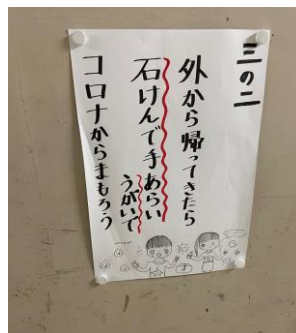 三の二
外から帰ってきたら
石けんで手あらい
うがいで
コロナからまもろう